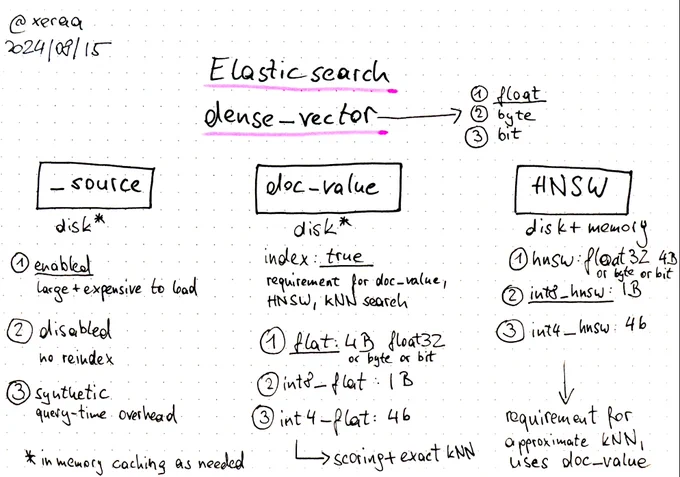 @xeraa
2024/08/15
Elasticsearch
dense_vector
① float
② byte
③ bit
_source
disk*
① enabled
large + expensive to load
② disabled
no reindex
③ synthetic
query-time overhead
* in memory caching as needed
doc_value
disk*
index: true
requirement for doc_value,
HNSW, kNN search
① flat: 4B float32
or byte or bit
② int8_flat: 1B
③ int4_flat: 4b
scoring + exact kNN
HNSW
disk + memory
① hnsw: float32 4B
or byte or bit
② int8_hnsw: 1B
③ int4_hnsw: 4b
requirement for
approximate kNN,
uses doc_value